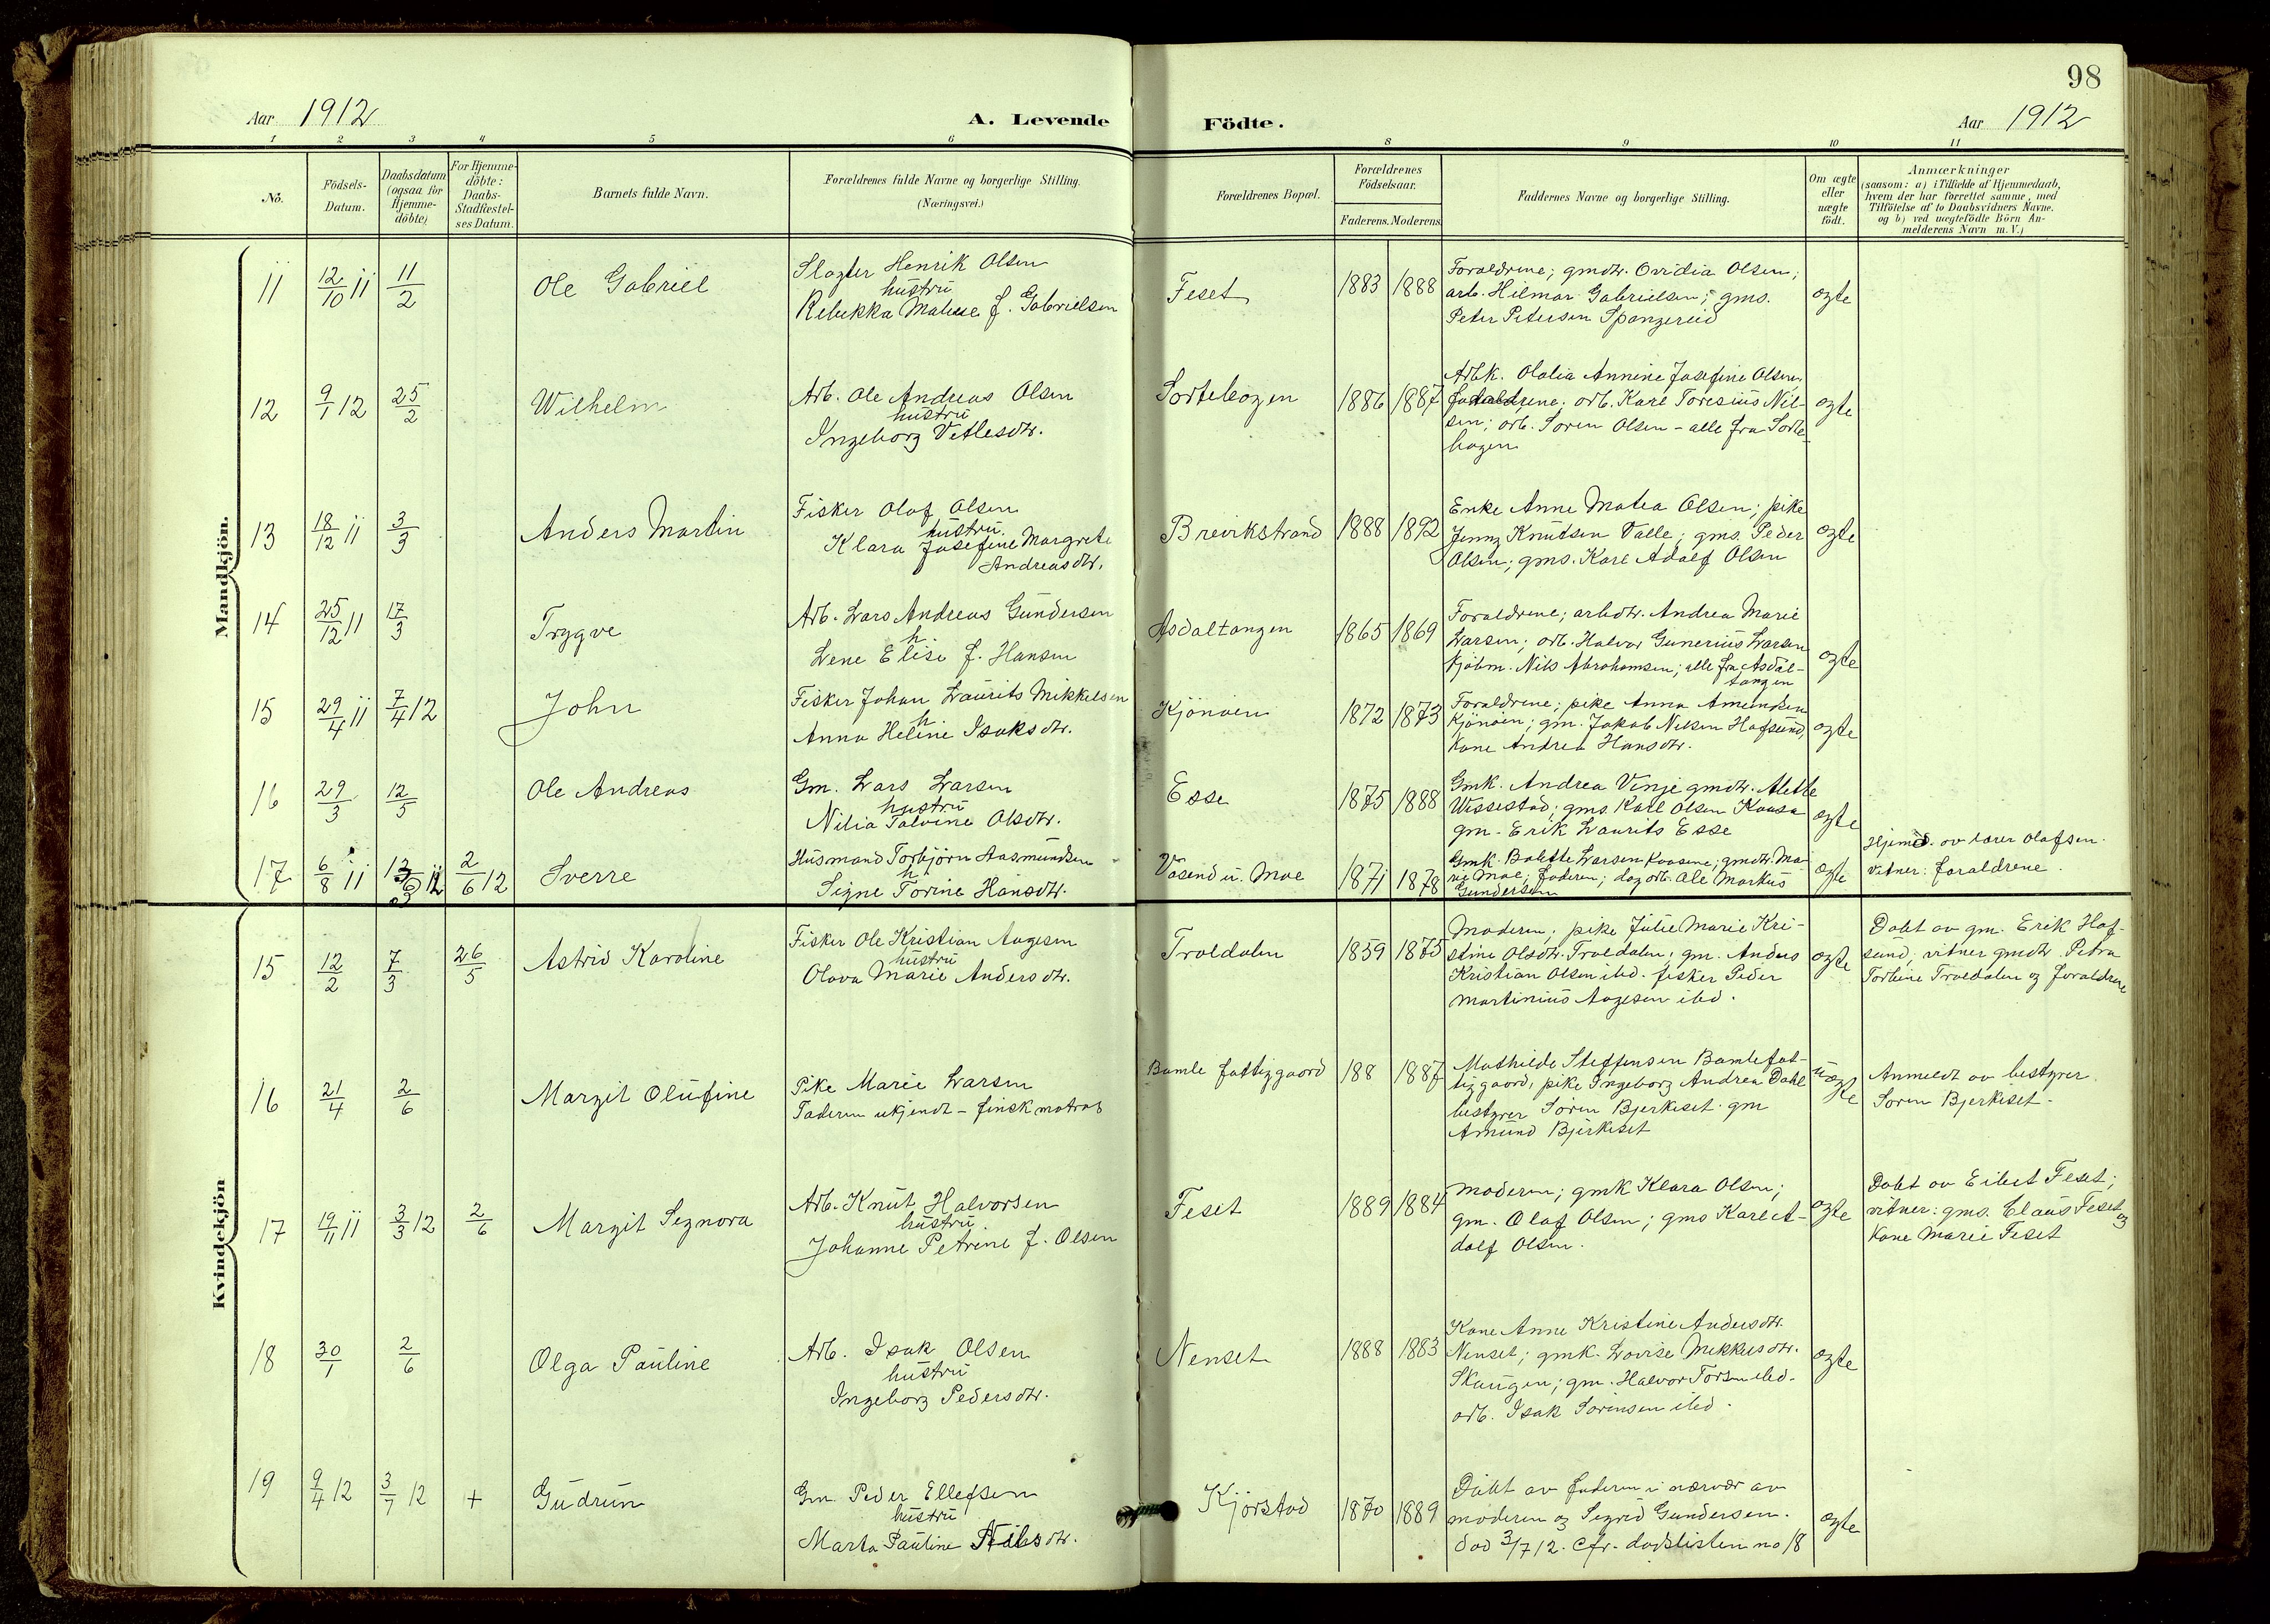 98
Aar 1912
A. Levende Födte.
Aar 1912
1 2 3 4 5 6 8 9 10 11
No.
Födsels-Datum.
Daabsdatum (ogsaa for Hjemme-döbte)
For Hjemme-döbte: Daabs-Stadfæstel-ses Datum.
Barnets fulde Navn.
Forældrenes fulde Navne og borgerlige Stilling.
(Næringsvei.)
Forældrenes Bopæl.
Forældrenes Födselsaar.
Faderens. Moderens
Faddernes Navne og borgerlige Stilling.
Om ægte eller uægte födt.
Anmærkninger
(saasom: a) i Tilfælde af Hjemmedaab,
hvem der har forrettet samme, med
Tilföielse af to Daabsvidners Navne.
og b) ved uægtefödte Börn An-
melderens Navn m. V.)
Mandkjön.
11 12/10 11 11/2 Ole Gabriel
Slagter Henrik Olsen
hustru
Rebekka Malene f. Gabrielsen
Feset 1883 1888
Foraldrene; gmdtr. Ovidia Olsen;
arb. Hilmar Gabrielsen; gms.
Peter Petersen Spangereid
ægte
12 9/1 12 25/2 Wilhelm
Arb. Ole Andreas Olsen
hustru
Ingeborg Vetlesdtr.
Sortebogen 1886 1887
Arbk. Olalia Annine Josefine Olsen,
foraldrene; arb. Karl Toresius Nil-
sen; arb. Soren Olsen - alle fra Sorte-
bogen
ægte
13 18/12 11 3/3 Anders Martin
Fisker Olaf Olsen
hustru
Klara Josefine Margrete
Andreasdtr.
Breivikstrand 1888 1892
Enke Anne Matea Olsen; pike
Jenny Knutsen Valle; gms. Peder
Olsen; gms. Karl Adolf Olsen
ægte
14 25/12 11 17/3 Trygve
Arb. Lars Andreas Gundersen
h.
Lene Elise f. Hansen
Asdaltangen 1865 1869
Foraldrene; arbdtr. Andrea Marie
Larsen; arb. Halvor Gunerius Larsen
kjöbm. Nils Abrahamsen; alle fra Asdal-
tangen
ægte
15 29/4 11 7/4 12 John
Fisker Johan Laurits Mikkelsen
h
Anna Heline Isaksdtr.
Kjönöen 1872 1873
Foraldrene; pike Anna Amundsen
Kjönöen; gm. Jakob Nilsen Hafsund,
Kone Andrea Hansdtr.
ægte
16 29/3 12/5 Ole Andreas
Gm. Lars Larsen
hustru
Nilia Talvine Olsdtr.
Esse 1875 1888
Gmk. Andrea Vinje gmdtr. Alette
Wissestad; gms. Karl Olsen Kaasa
gm. Erik Laurits Esse
ægte
17 6/8 11 2/6 12 Sverre
Husmand Torbjörn Aasmundsen
h
Signe Torine Hansdtr.
Vasend u. Moe 1871 1878
Gmk. Bolette Larsen Kaasene; gmdtr. Ma-
rie Moe; faderen; dagarb. Ole Markus
Gundersen
ægte
Hjemd. av lærer Olafsen.
vitner: foraldrene.
Kvindekjön
15 12/2 7/3 26/5 Astrid Karoline
Fisker Ole Kristian Aagesen
hustru
Olava Marie Andersdtr.
Troldalen 1859 1875
Moderen; pike Julie Marie Kri-
stine Olsdtr. Troldalen; gm. Anders
Kristian Olsen ibd. fisker Peder
Martinius Aagesen ibd.
ægte
Dobt av gm. Erik Haf-
sund, vitner gmdtr. Petra
Torbine Troldalen og foraldrene
16 21/4 2/6 Margit Olufine
Pike Marie Larsen
Faderen ukjendt - finsk matros
Bamle fattiggaard 188 1887
Mathilde Steffensen Bamle fat-
tiggaard, pike Ingeborg Andrea Dahl
bestyrer Sören Bjerkeset. gm
Amund Bjerkeset
uægte
Anmeldt av bestyrer
Soren Bjerkeset.
17 19/11 11 3/3 12 2/6 Margit Segnora
Arb. Knut Halvorsen
hustru
Johanne Petrine f. Olsen
Feset 1889 1884
Moderen; gmk Klara Olsen;
gm. Olaf Olsen; gms Karl A-
dolf Olsen.
ægte
Dobt av Eilert Feset;
vitner: gms. Claus Feset og
Kone Marie Feset
18 30/1 2/6 Olga Pauline
Arb. Isak Olsen
hustru
Ingeborg Pedersdtr.
Nenset 1888 1883
Kone Anne Kristine Andersdtr.
Nenset; gmk. Lovise Mikkelsdtr.
Skaugen; gm. Halvor Torsen ibd.
arb. Isak Sorensen ibd.
ægte
19 9/4 12 3/7 12 + Gudrun
Gm. Peder Ellefsen
hustru
Marta Pauline Nilsdtr.
Kjörstad 1870 1889
Döbt av faderen i nærvær av
moderen og Segrid Gundersen.
Död 3/7 12. Cfr. dodslisten no 18
ægte